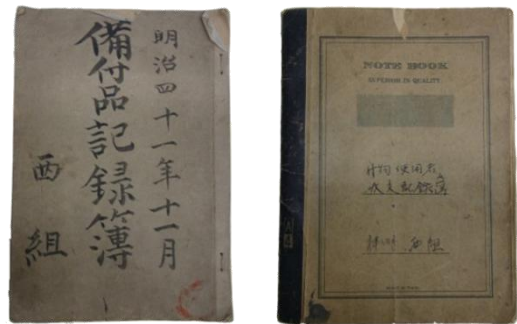 明治四十一年十一月
備付品記録簿
西組
NOTE BOOK
SUPERIOR IN QUALITY
使用者
收支記録簿
西組